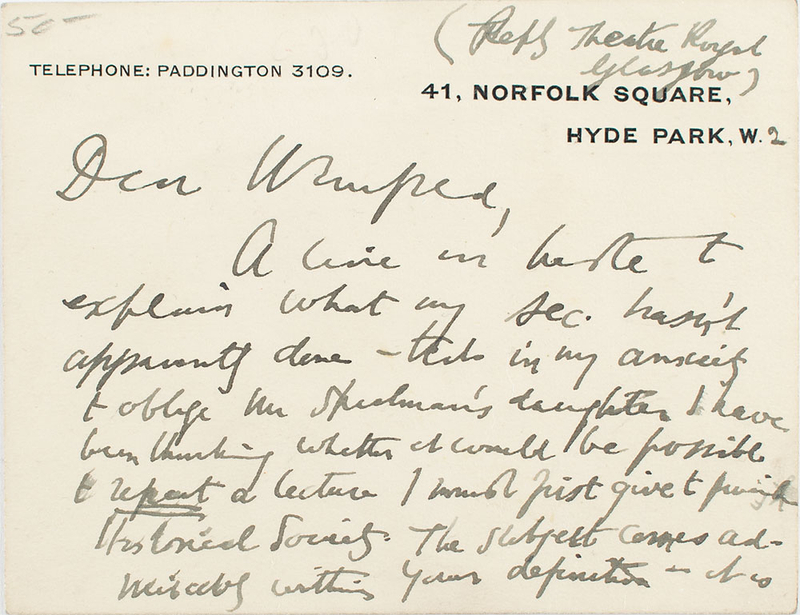 50-
(Reply Theatre Royal
Glasgow)
TELEPHONE: PADDINGTON 3109.
41, NORFOLK SQUARE,
HYDE PARK, W.2
Dear Winifred,
A line in haste to
explain what my sec. hasn't
apparently done - that in my anxiety
to oblige Mr Spielman's daughter I have
been thinking whether it would be possible
to repeat a lecture I must first give to
Historical Society. The subject comes ad-
mirably within your definition - it is